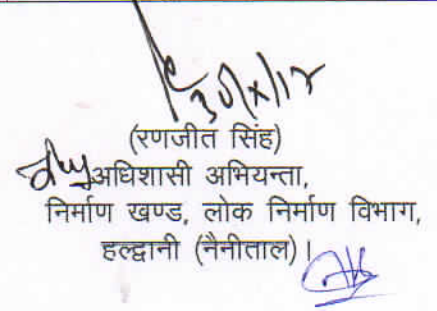 30/x/18
(रणजीत सिंह)
अधिशासी अभियन्ता,
निर्माण खण्ड, लोक निर्माण विभाग,
हल्द्वानी (नैनीताल)।